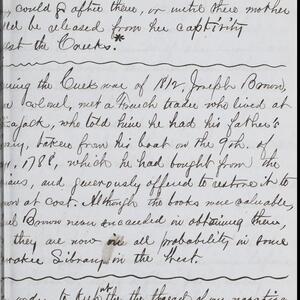 could go after there, or until there mother
be released from her captivity
the Creeks.*
the Creek war of 1812, Joseph Brown,
colonel, met a French trader who lived at
who told him he had his father's
taken from his boat on the 9th. of
1788, which he had bought from the
and generously offered to restore it to
at cost. Although the books was valuable,
Brown never succeeded in obtaining them,
they are now in all probability in some
Library in the West.
the thread of my narrative